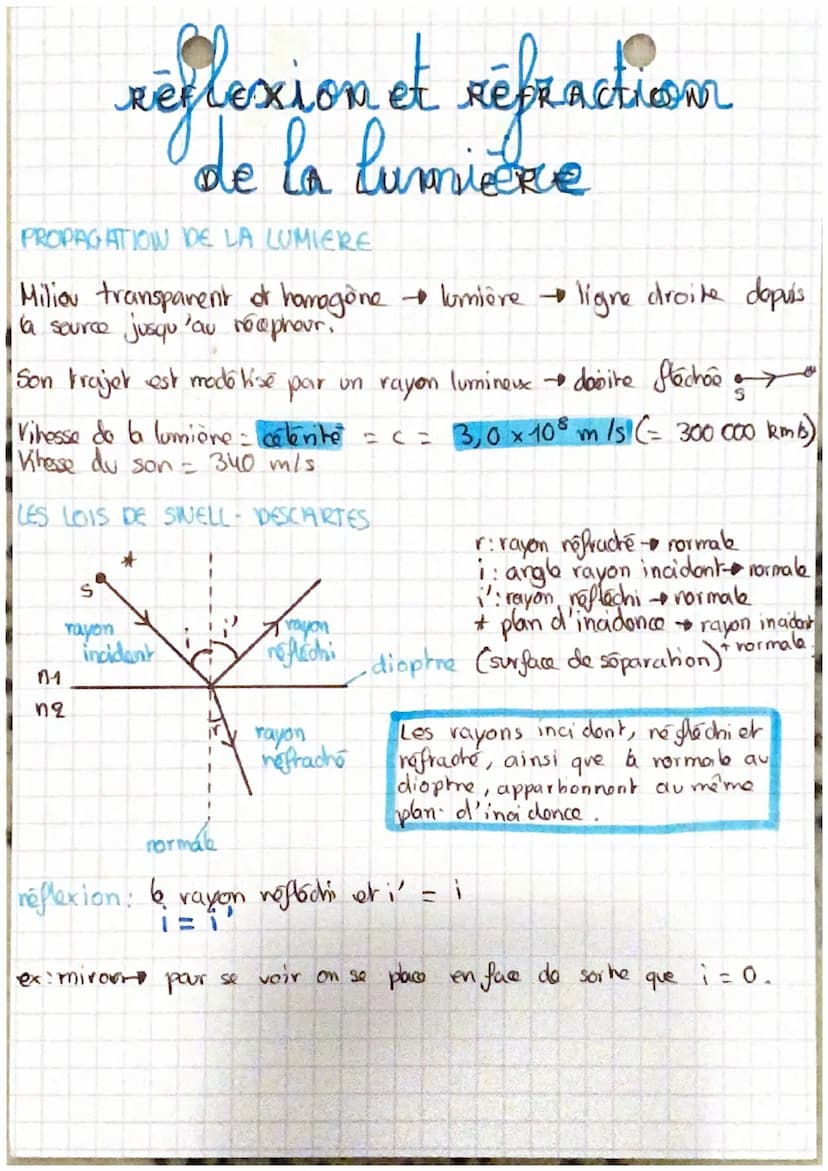 réflexion et réfraction
de la lumière
PROPAGATION DE LA LUMIERE
Milieu transparent et homogène → lumière → ligne droite depuis
la source jusqu'au récepteur.
Son trajet est modélisé par un rayon lumineux → droite fléchée S
Vitesse de la lumière = célérité = c = 3,0 x 10⁸ m/s (= 300 000 km/s)
Vitesse du son = 340 m/s
LES LOIS DE SNELL - DESCARTES
r : rayon réfracté → normale
i : angle rayon incident → normale
i' : rayon réfléchi → normale
* plan d'incidence → rayon incident + normale
dioptre (surface de séparation)
*
S
rayon incident
i
i'
rayon réfléchi
n1
n2
r
rayon réfracté
normale
Les rayons incident, réfléchi et
réfracté, ainsi que la normale au
dioptre, appartiennent au même
plan d'incidence.
réflexion : le rayon réfléchi et i' = i
i = i'
ex : miroir → pour se voir on se place en face de sorte que i = 0.